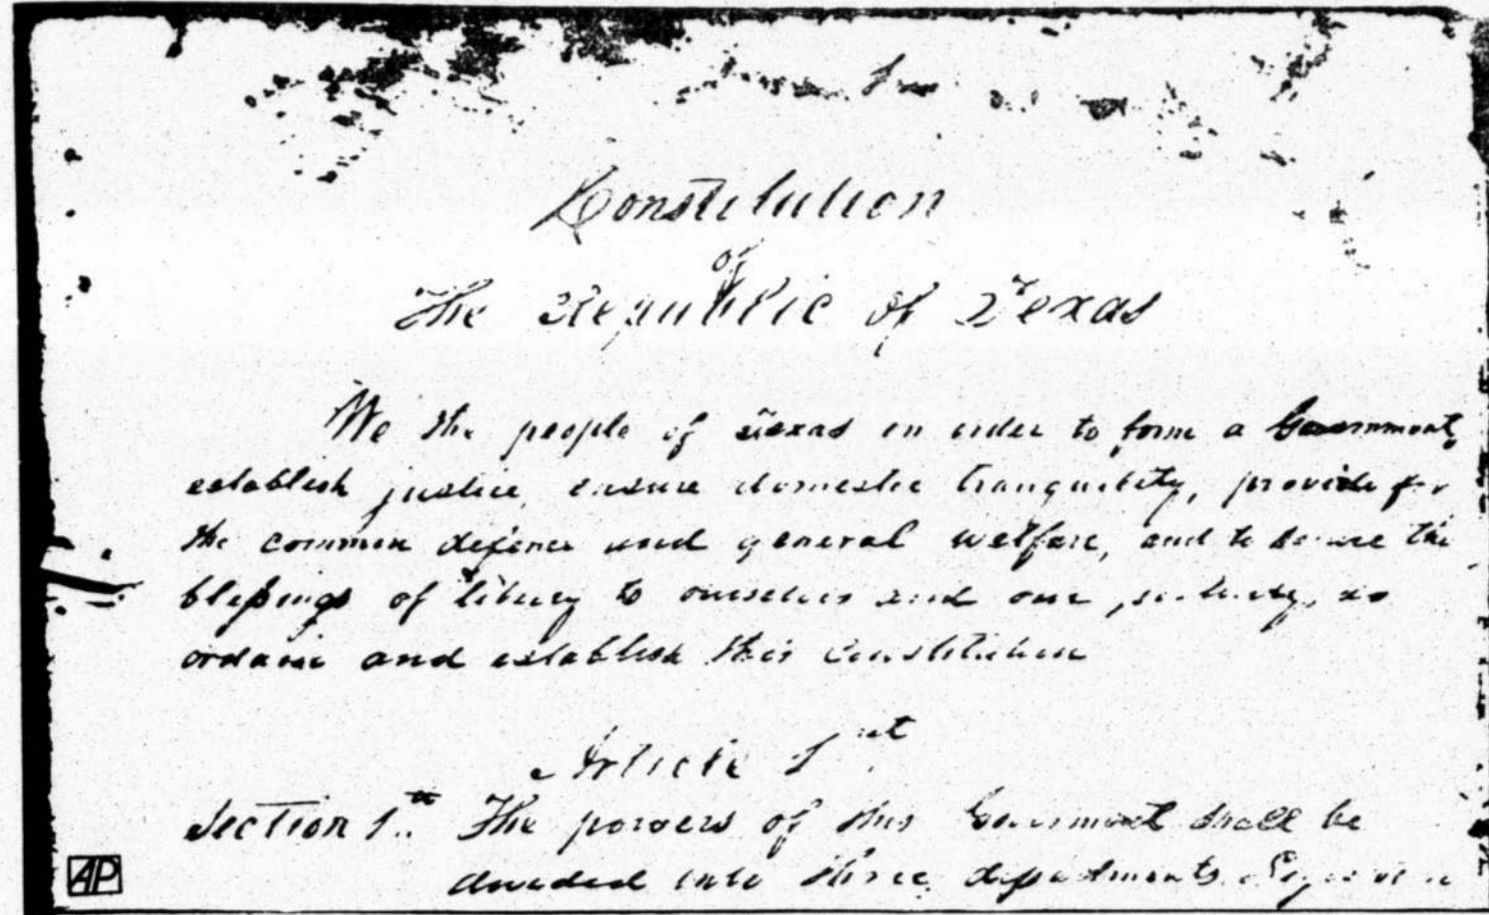 Constitution
of
The Republic of Texas
We the people of Texas in order to form a Government,
establish justice, ensure domestic tranquility, provide for
the common defence and general welfare, and to secure the
blessings of liberty to ourselves and our posterity, do
ordain and establish this Constitution
Article 1st
Section 1st The powers of this Government shall be
divided into three departments
AP